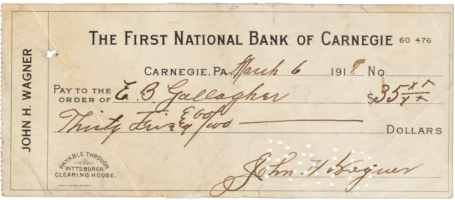 THE FIRST NATIONAL BANK OF CARNEGIE 60 476
CARNEGIE, PA. March 6 1918 No.
PAY TO THE
ORDER OF E B Gallagher $35 xx/xx
Thirty Five DOLLARS
PAYABLE THROUGH
PITTSBURGH
CLEARING HOUSE.
John H Wagner
JOHN H. WAGNER